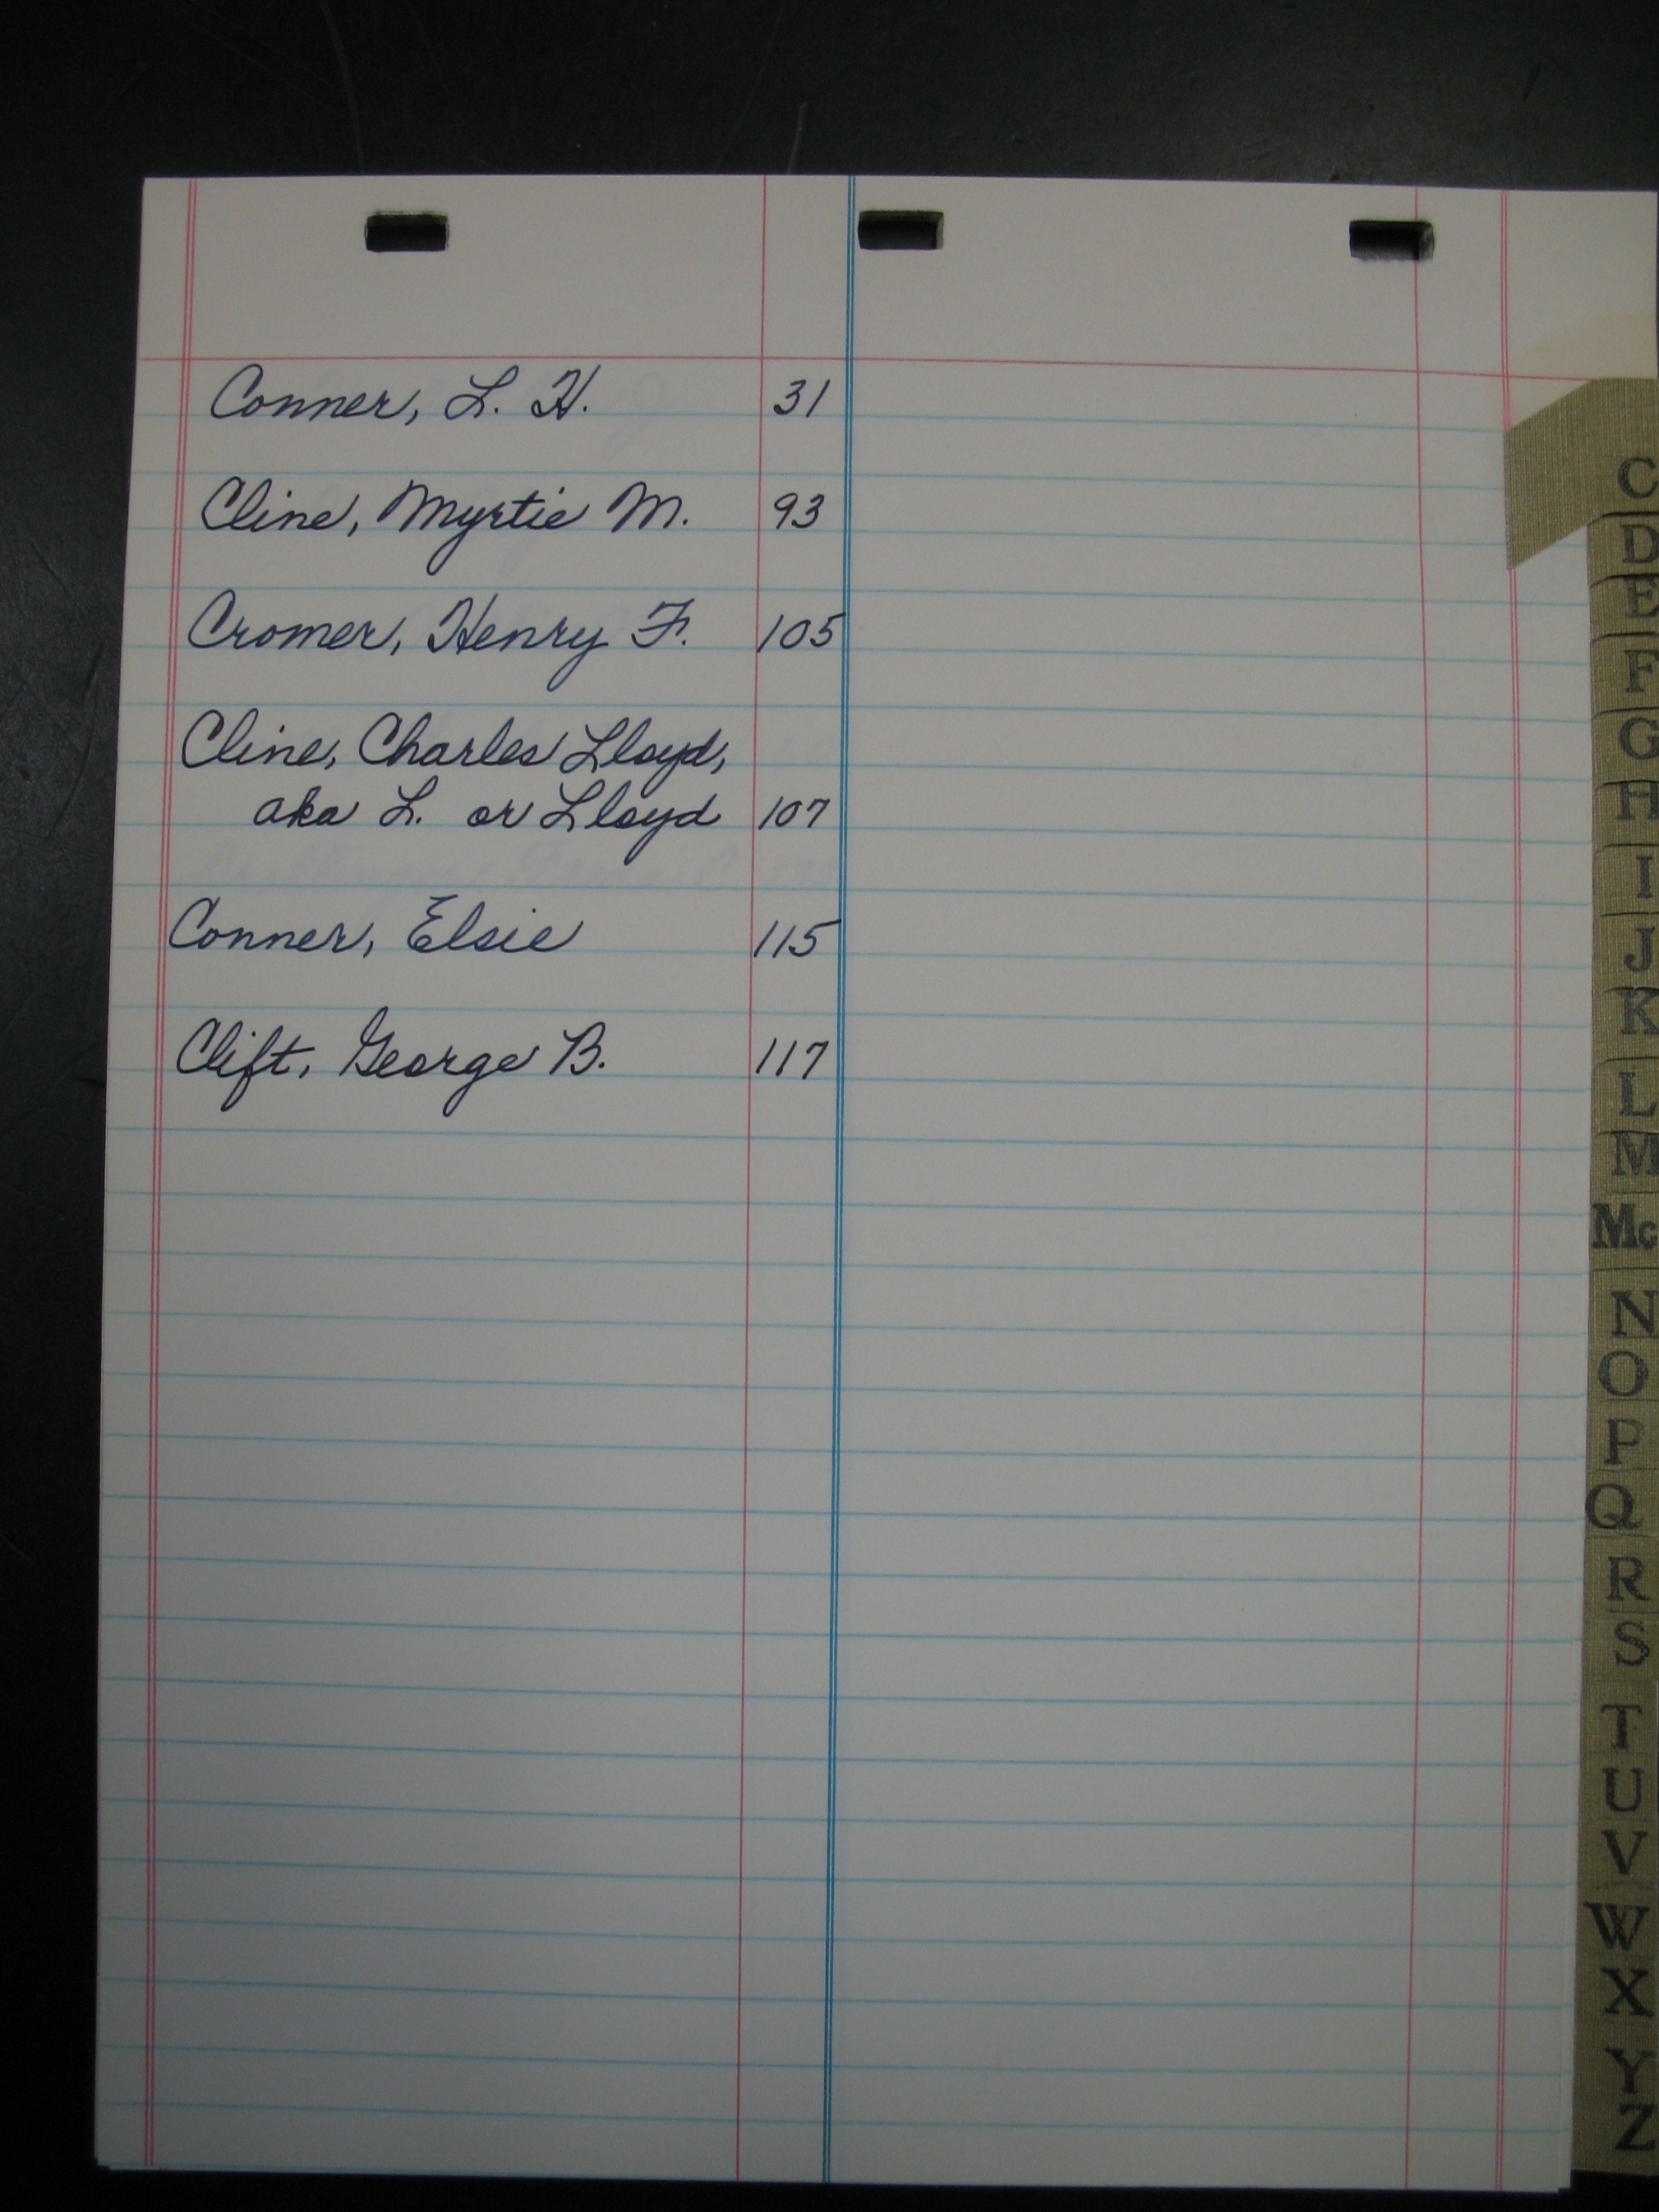 Conner, L. H. 31
Cline, Myrtie M. 93
Cromer, Henry F. 105
Cline, Charles Lloyd,
aka L. or Lloyd 107
Conner, Elsie 115
Clift, George B. 117
C
D
E
F
G
H
I
J
K
L
M
Mc
N
O
P
Q
R
S
T
U
V
W
X
Y
Z